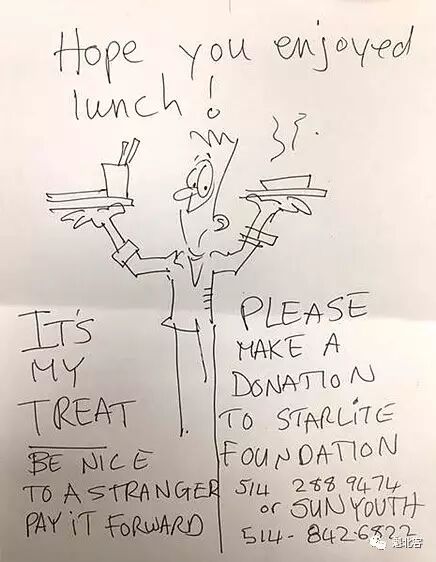 Hope you enjoyed
lunch!
IT'S
MY
TREAT
BE NICE
TO A STRANGER
PAY IT FORWARD
PLEASE
MAKE A
DONATION
TO STARLITE
FOUNDATION
514 288 9474
or SUN YOUTH
514-842-6822
魁北客